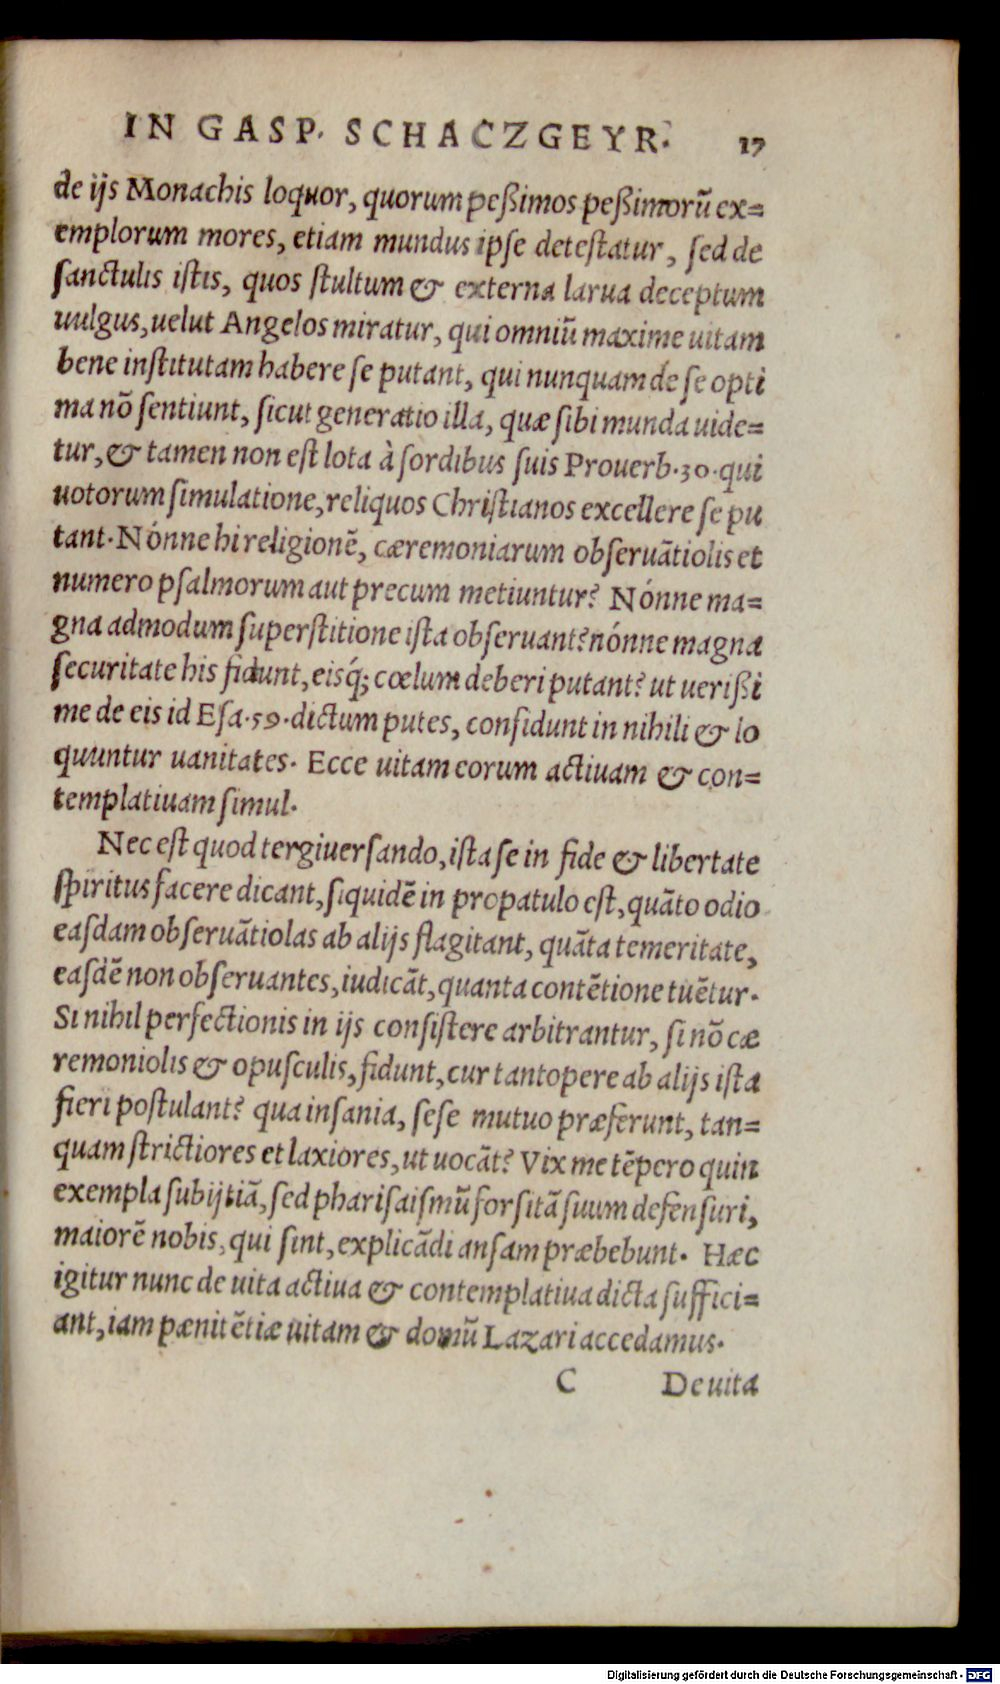 IN GASP. SCHACZGEYR. 17
de ijs Monachis loquor, quorum peßimos peßimorũ ex=
emplorum mores, etiam mundus ipse detestatur, sed de
sanctulis istis, quos stultum & externa larua deceptum
uulgus, uelut Angelos miratur, qui omniũ maxime uitam
bene institutam habere se putant, qui nunquam de se opti
ma nõ sentiunt, sicut generatio illa, quæ sibi munda uide=
tur, & tamen non est lota à sordibus suis Prouerb.30.qui
uotorum simulatione, reliquos Christianos excellere se pu
tant. Nónne hi religionẽ, cæremoniarum obseruãtiolis et
numero psalmorum aut precum metiuntur? Nónne ma=
gna admodum superstitione ista obseruant? nónne magna
securitate his fidunt, eisq́; cœlum deberi putant? ut uerißi
me de eis id Esa.59.dictum putes, confidunt in nihili & lo
quuntur uanitates. Ecce uitam eorum actiuam & con=
templatiuam simul.
Nec est quod tergiuersando, ista se in fide & libertate
spiritus facere dicant, siquidẽ in propatulo est, quãto odio
easdam obseruãtiolas ab alijs flagitant, quãta temeritate,
easdẽ non obseruantes, iudicãt, quanta contẽtione tuẽtur.
Si nihil perfectionis in ijs consistere arbitrantur, si nõ cæ
remoniolis & opusculis, fidunt, cur tantopere ab alijs ista
fieri postulant? qua insania, sese mutuo præferunt, tan=
quam strictiores et laxiores, ut uocãt? Vix me tẽpero quin
exempla subijtiã, sed pharisaismũ forsitã suum defensuri,
maiorẽ nobis, qui sint, explicãdi ansam præbebunt. Hæc
igitur nunc de uita actiua & contemplatiua dicta suffici=
ant, iam pænitẽtiæ uitam & domũ Lazari accedamus.
C De uita
Digitalisierung gefördert durch die Deutsche Forschungsgemeinschaft - DFG